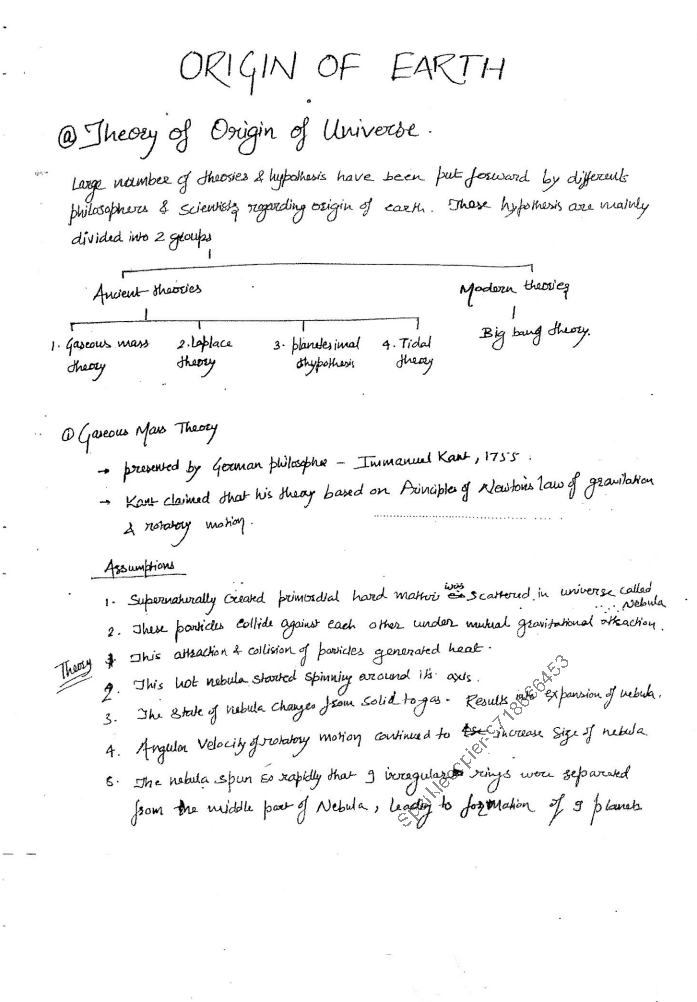 ORIGIN OF EARTH
@ Theory of Origin of Universe.
Large number of theories & hypothesis have been put forward by differents
philosophers & scientists regarding origin of earth. These hypothesis are mainly
divided into 2 groups
Ancient theories
Modern theories
1. Gaseous mass theory
2. Laplace theory
3. planetesimal hypothesis
4. Tidal theory
Big bang theory.
① Gaseous Mass Theory
→ presented by German philospher - Immanuel Kant, 1755.
→ Kant claimed that his theory based on Principles of Newton's law of gravitation
& rotatory motion.
Assumptions
1. Supernaturally created primordial hard matter was scattered in universe called Nebula
2. These particles collide against each other under mutual gravitational attraction.
Theory 1. This attraction & collision of particles generated heat.
2. This hot nebula started spinning around its axis.
3. The state of nebula changes from solid to gas. Results expansion of nebula.
4. Angular velocity of rotatory motion continued to increase size of nebula
5. The nebula spun so rapidly that 9 irregular rings were separated
from the middle part of Nebula, leading to formation of 9 planets